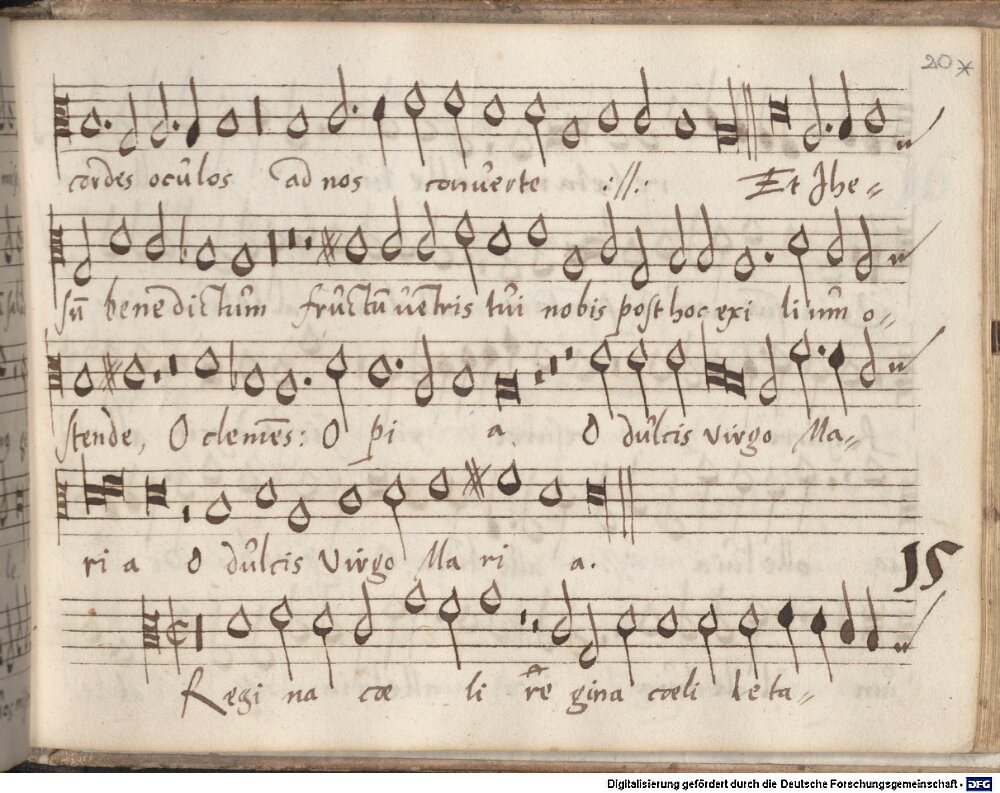 20*
cordes ocūlos ad nos convērte ://:
Et Jhe-
sū benedictūm frūctū vētris tūi nobis post hoc exi liūm o-
stende, O clemēs: O pi a O dūlcis virgo Ma-
ri a O dūlcis Virgo Ma ri a.
JS
Regi na cœ li re gina cœli leta-
Digitalisierung gefördert durch die Deutsche Forschungsgemeinschaft - DFG